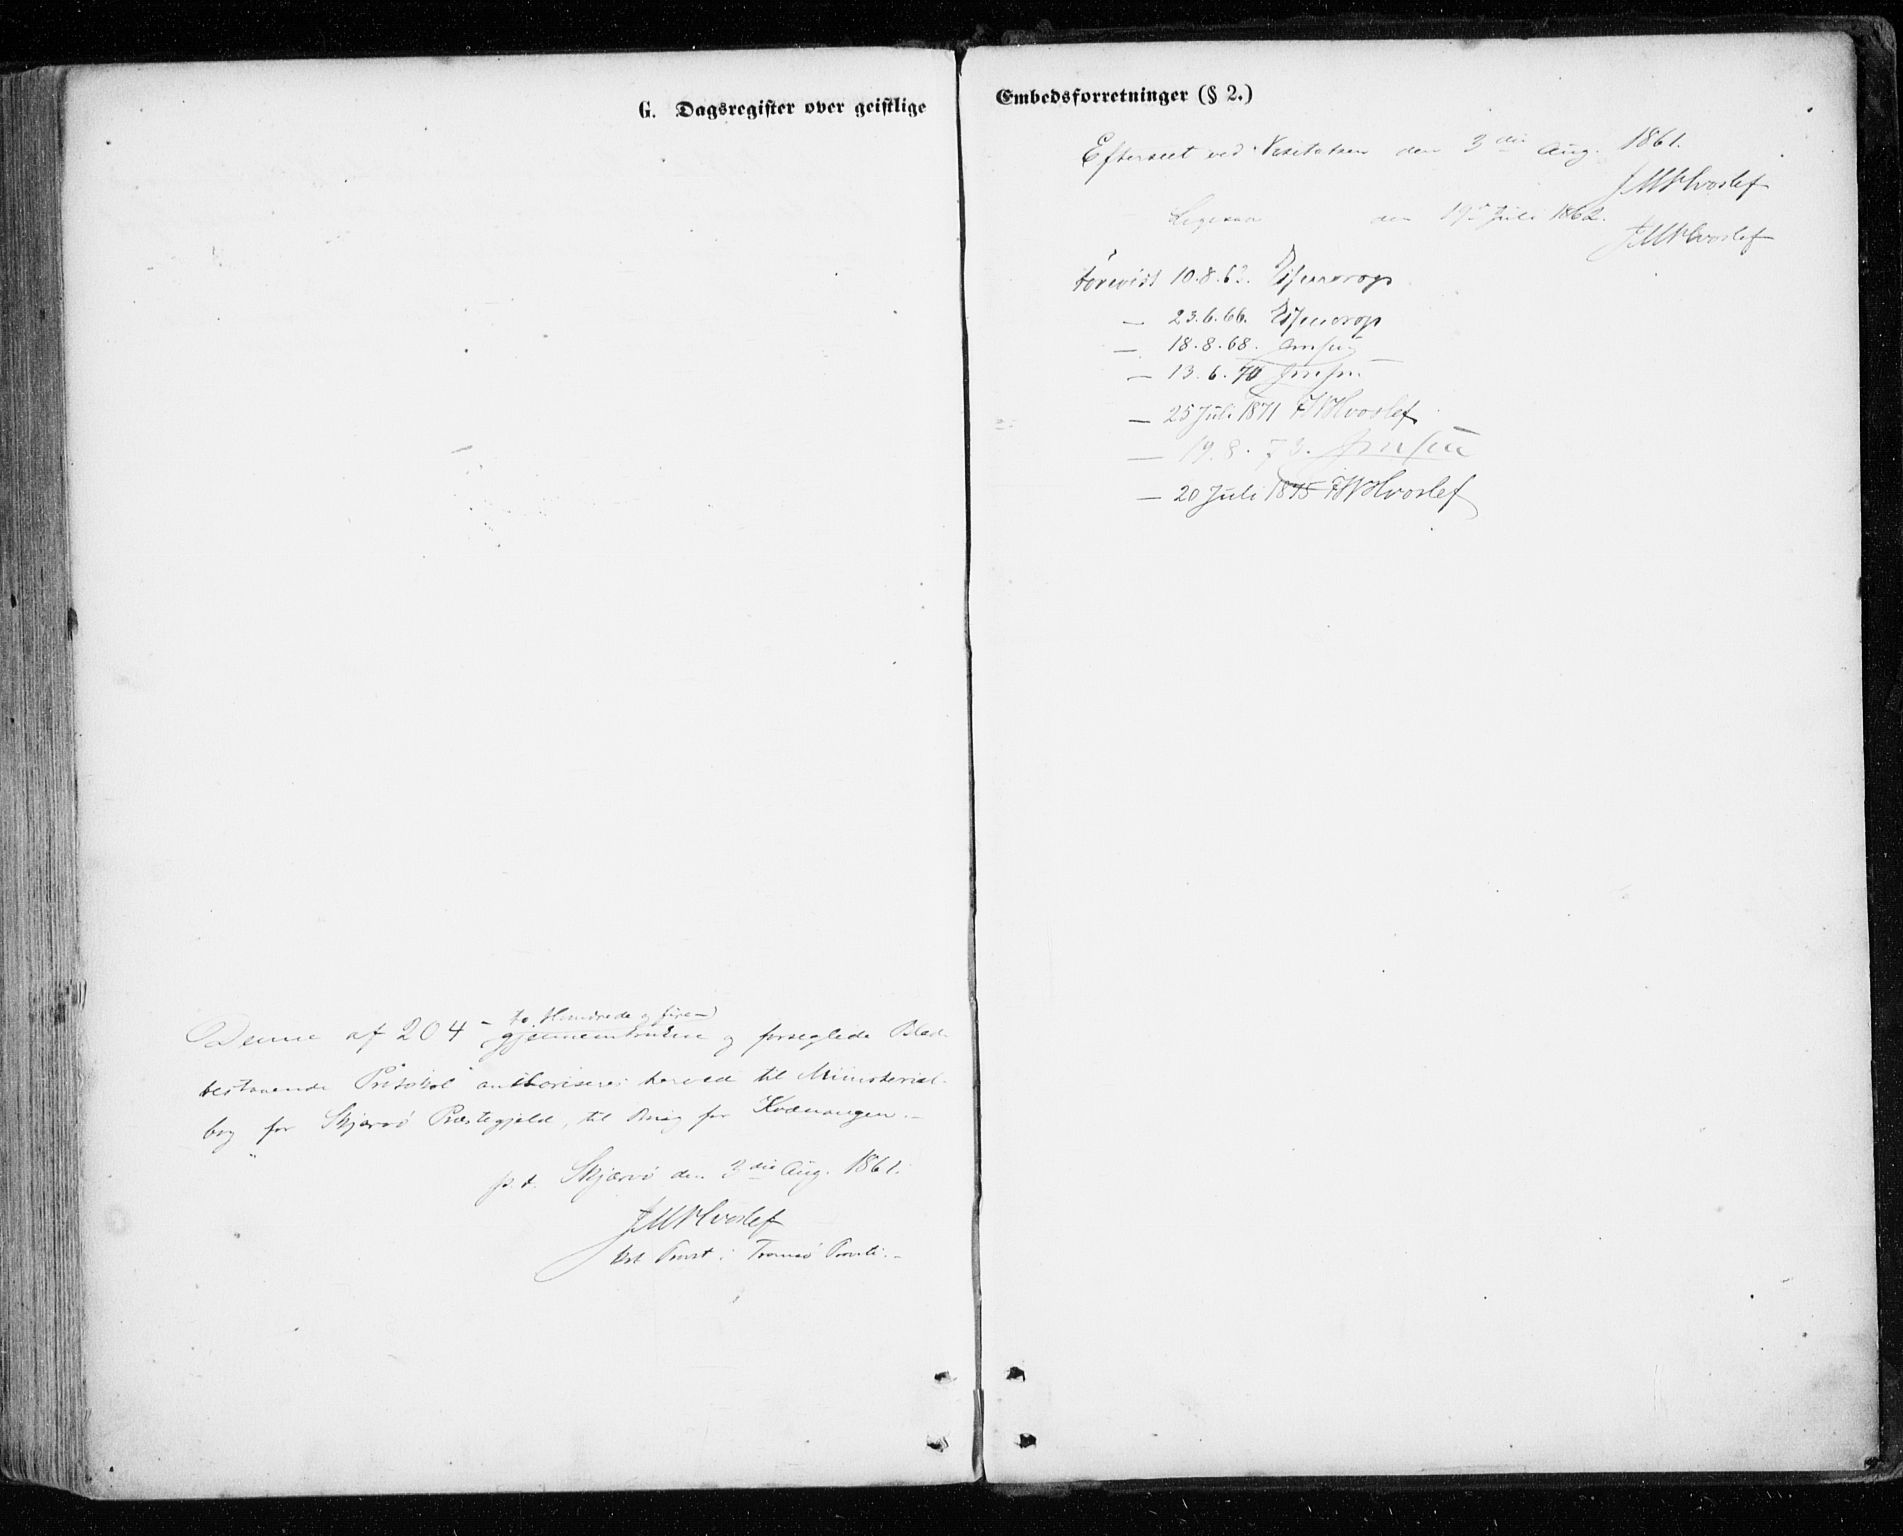 G. Dagsregister over geistlige
Embedsforretninger (§ 2.)
Denne af 204 - to Hundrede og fire -
gjennemtrukne og forseglede Blade
bestaaende Protokol authoriseres herved til Ministerial-
bog for Skjærvø Præstegjeld, til Brug for Kvænangen. -
p. t. Skjærvø den 3die Aug. 1861.
Hvoslef
kst Provst i Tromsø Provsti. -
Efterseet ved Visitatsen den 3die Aug. 1861.
Hvoslef
Ligesaa den 19de Juli 1862.
Hvoslef
forevist 10.8.62.
— 23.6.66.
— 18.8.68.
— 13.6.70
— 25 Juli 1871 FWHvoslef
— 19.8.73.
— 20 Juli 1875 FWHvoslef